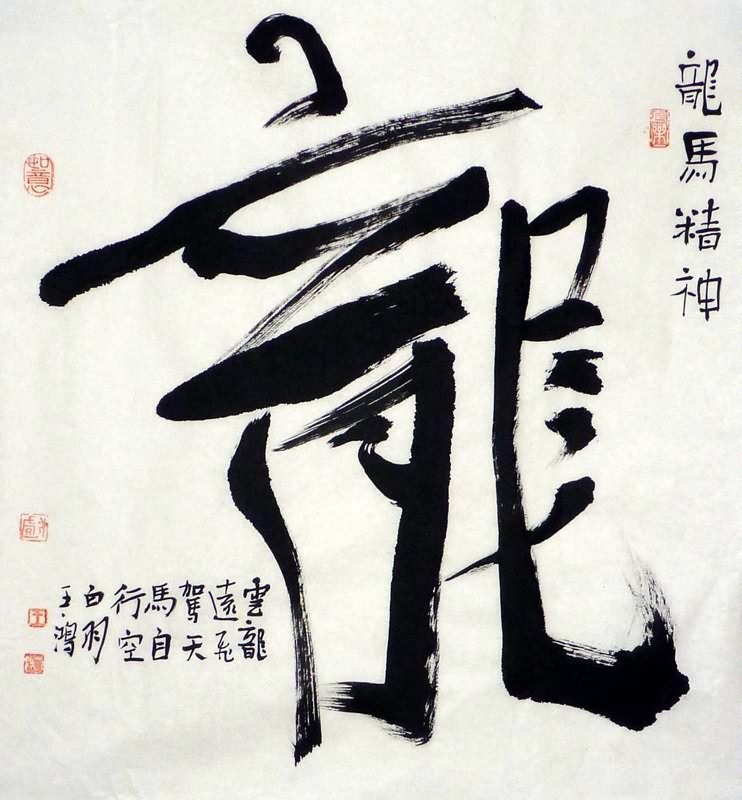 龍馬精神
龍
雲龍
遠飛
駕天
馬自
行空
白羽
王鴻
如意